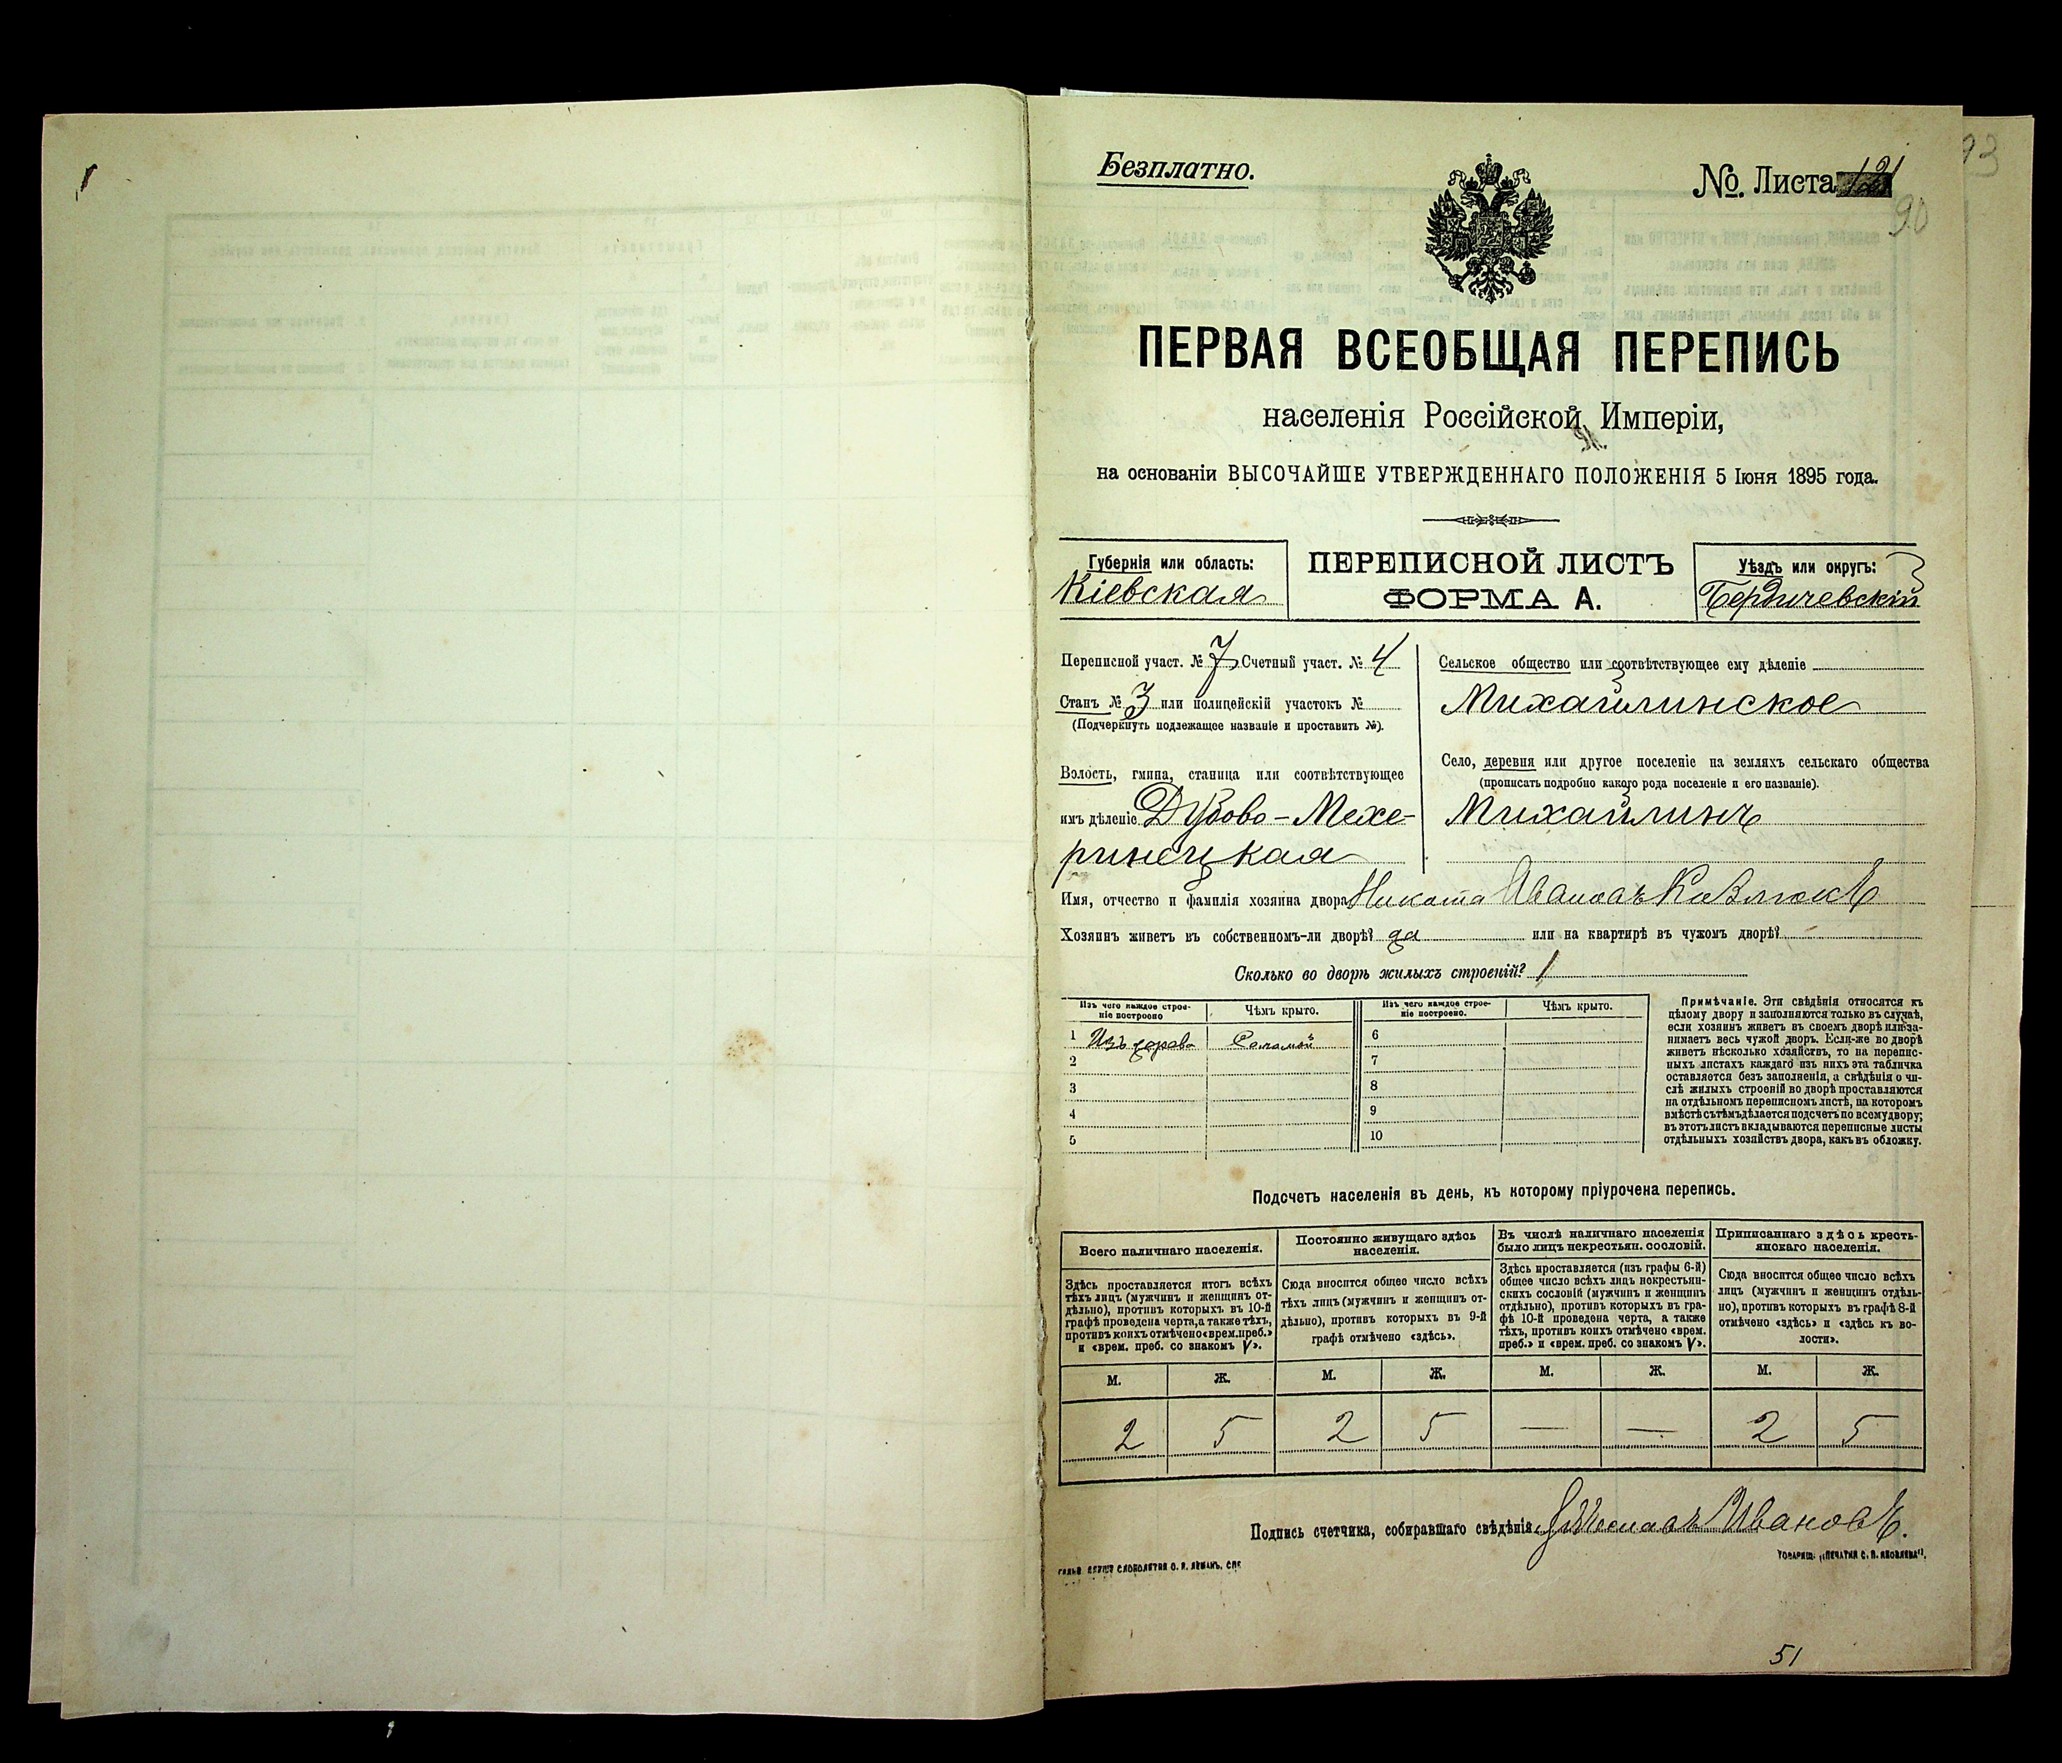 Безплатно.
№. Листа 121
93
90
ПЕРВАЯ ВСЕОБЩАЯ ПЕРЕПИСЬ
населенія Россійской Имперіи,
на основаніи ВЫСОЧАЙШЕ УТВЕРЖДЕННАГО ПОЛОЖЕНІЯ 5 Іюня 1895 года.
Губернія или область:
Кіевская
ПЕРЕПИСНОЙ ЛИСТЪ
ФОРМА А.
Уѣздъ или округъ:
Бердичевскій
Переписной участ. № 7 Счетный участ. № 4
Станъ № 3 или полицейскій участокъ №
(Подчеркнуть подлежащее названіе и проставить №).
Волость, гмина, станица или соотвѣтствующее
имъ дѣленіе Дубово-Мехе-
ринецкая
Сельское общество или соотвѣтствующее ему дѣленіе
Михайлинское
Село, деревня или другое поселеніе на земляхъ сельскаго общества
(прописать подробно какого рода поселеніе и его названіе).
Михайлинъ
Имя, отчество и фамилія хозяина двора Никита Ивановъ
Хозяинъ живетъ въ собственномъ-ли дворѣ? да или на квартирѣ въ чужомъ дворѣ?
Сколько во дворѣ жилыхъ строеній? 1
Изъ чего каждое строе-
ніе построено
Чѣмъ крыто.
Изъ чего каждое строе-
ніе построено.
Чѣмъ крыто.
1 Изъ дерева Соломой 6
2 7
3 8
4 9
5 10
Примѣчаніе. Эти свѣдѣнія относятся къ
цѣлому двору и заполняются только въ случаѣ,
если хозяинъ живетъ въ своемъ дворѣ или за-
нимаетъ весь чужой дворъ. Если-же во дворѣ
живетъ нѣсколько хозяйствъ, то на перепис-
ныхъ листахъ каждаго изъ нихъ эта табличка
оставляется безъ заполненія, а свѣдѣнія о чи-
слѣ жилыхъ строеній во дворѣ проставляются
на отдѣльномъ переписномъ листѣ, на которомъ
вмѣстѣ съ тѣмъ дѣлается подсчетъ по всему двору;
въ этотъ листъ вкладываются переписные листы
отдѣльныхъ хозяйствъ двора, какъ въ обложку.
Подсчетъ населенія въ день, къ которому пріурочена перепись.
Всего наличнаго населенія.
Постоянно живущаго здѣсь
населенія.
Въ числѣ наличнаго населенія
было лицъ некрестьян. сословій.
Приписаннаго здѣсь кресть-
янскаго населенія.
Здѣсь проставляется итогъ всѣхъ
тѣхъ лицъ (мужчинъ и женщинъ от-
дѣльно), противъ которыхъ въ 10-й
графѣ проведена черта, а также тѣхъ,
противъ коихъ отмѣчено «врем. преб.»
и «врем. преб. со знакомъ V».
Сюда вносится общее число всѣхъ
тѣхъ лицъ (мужчинъ и женщинъ от-
дѣльно), противъ которыхъ въ 9-й
графѣ отмѣчено «здѣсь».
Здѣсь проставляется (изъ графы 6-й)
общее число всѣхъ лицъ некрестьян-
скихъ сословій (мужчинъ и женщинъ
отдѣльно), противъ которыхъ въ гра-
фѣ 10-й проведена черта, а также
тѣхъ, противъ коихъ отмѣчено «врем.
преб.» и «врем. преб. со знакомъ V».
Сюда вносится общее число всѣхъ
лицъ (мужчинъ и женщинъ отдѣль-
но), противъ которыхъ въ графѣ 8-й
отмѣчено «здѣсь» и «здѣсь къ во-
лости».
М. Ж. М. Ж. М. Ж. М. Ж.
2 5 2 5 — — 2 5
Подпись счетчика, собиравшаго свѣдѣнія Ивановъ.
ТОВАРИЩ. „ПЕЧАТНЯ С. П. ЯКОВЛЕВА".
51